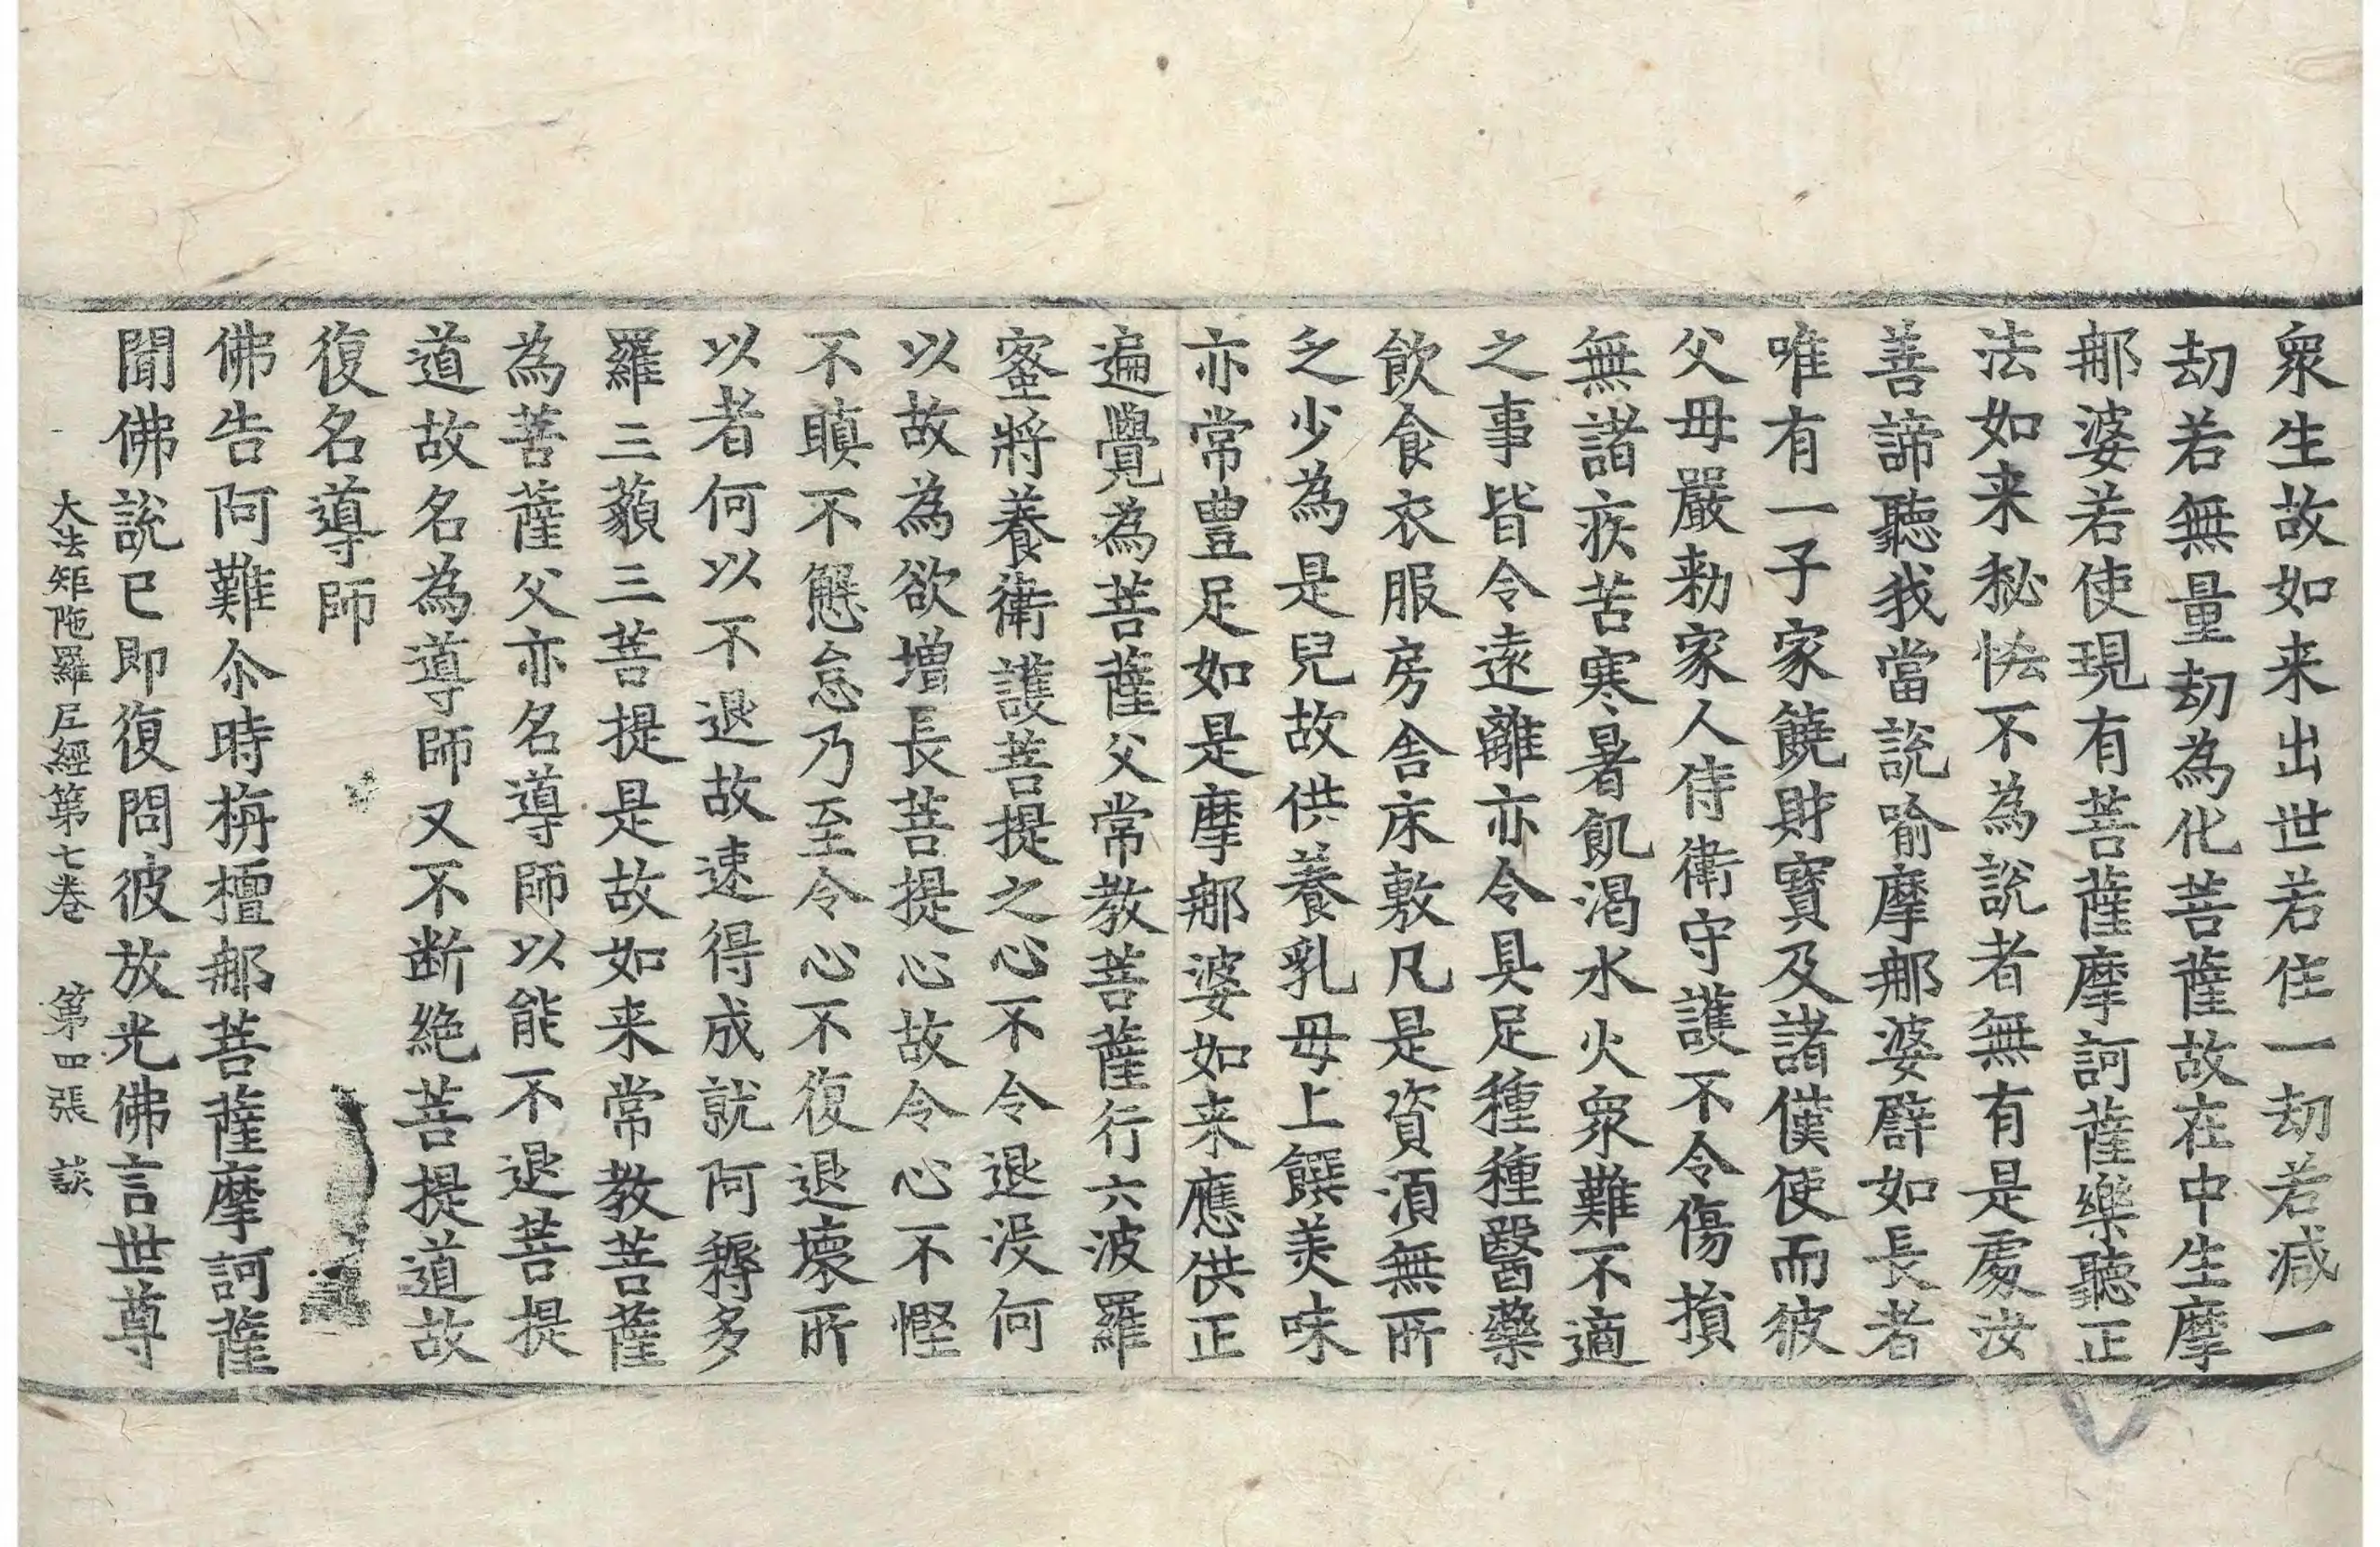 衆生故如来出世若住一劫若减一
劫若無量劫為化菩薩故在中生摩
那婆若使現有菩薩摩訶薩樂聽正
法如来秘悋不為説者無有是處汝
善諦聽我當説喻摩那婆辟如長者
唯有一子家饒財寶及諸僕使而彼
父母嚴勑家人侍衛守護不令傷損
無諸疾苦寒暑飢渴水火衆難不適
之事皆令遠離亦令具足種種醫藥
飲食衣服房舎床敷凡是資湏無所
乏少為是兒故供養乳母上饌羙味
亦常豊足如是摩那婆如来應供正
遍覺為菩薩父常教菩薩行六波羅
蜜將養衛護菩提之心不令退没何
以故為欲增長菩提心故令心不慳
不瞋不懈怠乃至令心不復退壞所
以者何以不退故速得成就阿耨多
羅三藐三菩提是故如来常教菩薩
為菩薩父亦名導師以能不退菩提
道故名為導師又不断絶菩提道故
復名導師
佛告阿難尒時栴檀那菩薩摩訶薩
聞佛説已即復問彼放光佛言世尊
大法炬陁羅尼經第七卷　第四張　談